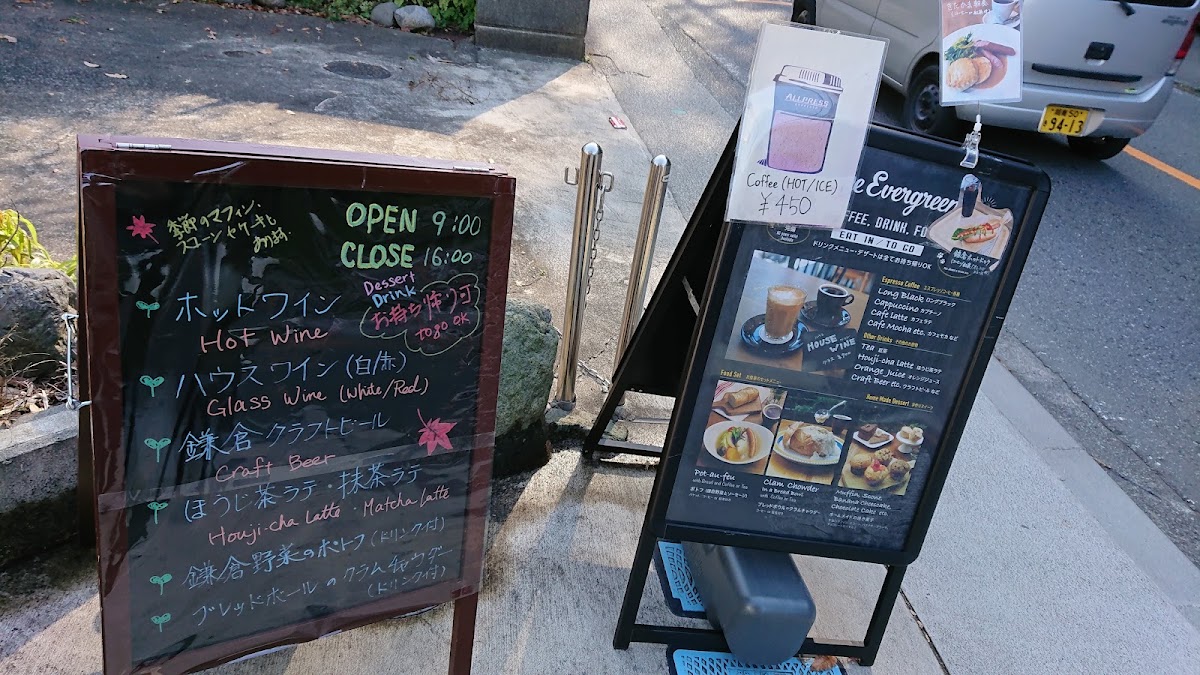 季節のマフィン、
スコーンやケーキも
あります。
OPEN 9:00
CLOSE 16:00
Dessert
Drink
お持ち帰り可
to go OK
ホットワイン
Hot Wine
ハウスワイン(白/赤)
Glass Wine (White/Red)
鎌倉クラフトビール
Craft Beer
ほうじ茶ラテ・抹茶ラテ
Houji-cha Latte・Matcha Latte
鎌倉野菜のポトフ(ドリンク付)
ブレッドボールのクラムチャウダー
(ドリンク付)
ALLPRESS
Coffee (HOT/ICE)
¥450
Evergreen
DRINK.
EAT IN / TO GO
ドリンクメニュー・デザートは全てお持ち帰りOK
鎌倉ホットドッグ
HOUSE WINE
Espresso Coffee
Long Black ロングブラック
Cappuccino カプチーノ
Cafe Latte カフェラテ
Cafe Mocha etc. カフェモカ など
Other Drinks
Tea 紅茶
Houji-cha Latte ほうじ茶ラテ
Orange Juice オレンジジュース
Craft Beer etc. クラフトビール など
Food Set
Home Made Dessert
Pot-au-feu
with Bread and Coffee or Tea
Clam Chowder
in a Bread Bowl
with Coffee or Tea
ブレッドボウルのクラムチャウダー
Muffin, Scone,
Banana Cheesecake,
Chocolate Cake etc.
94-13